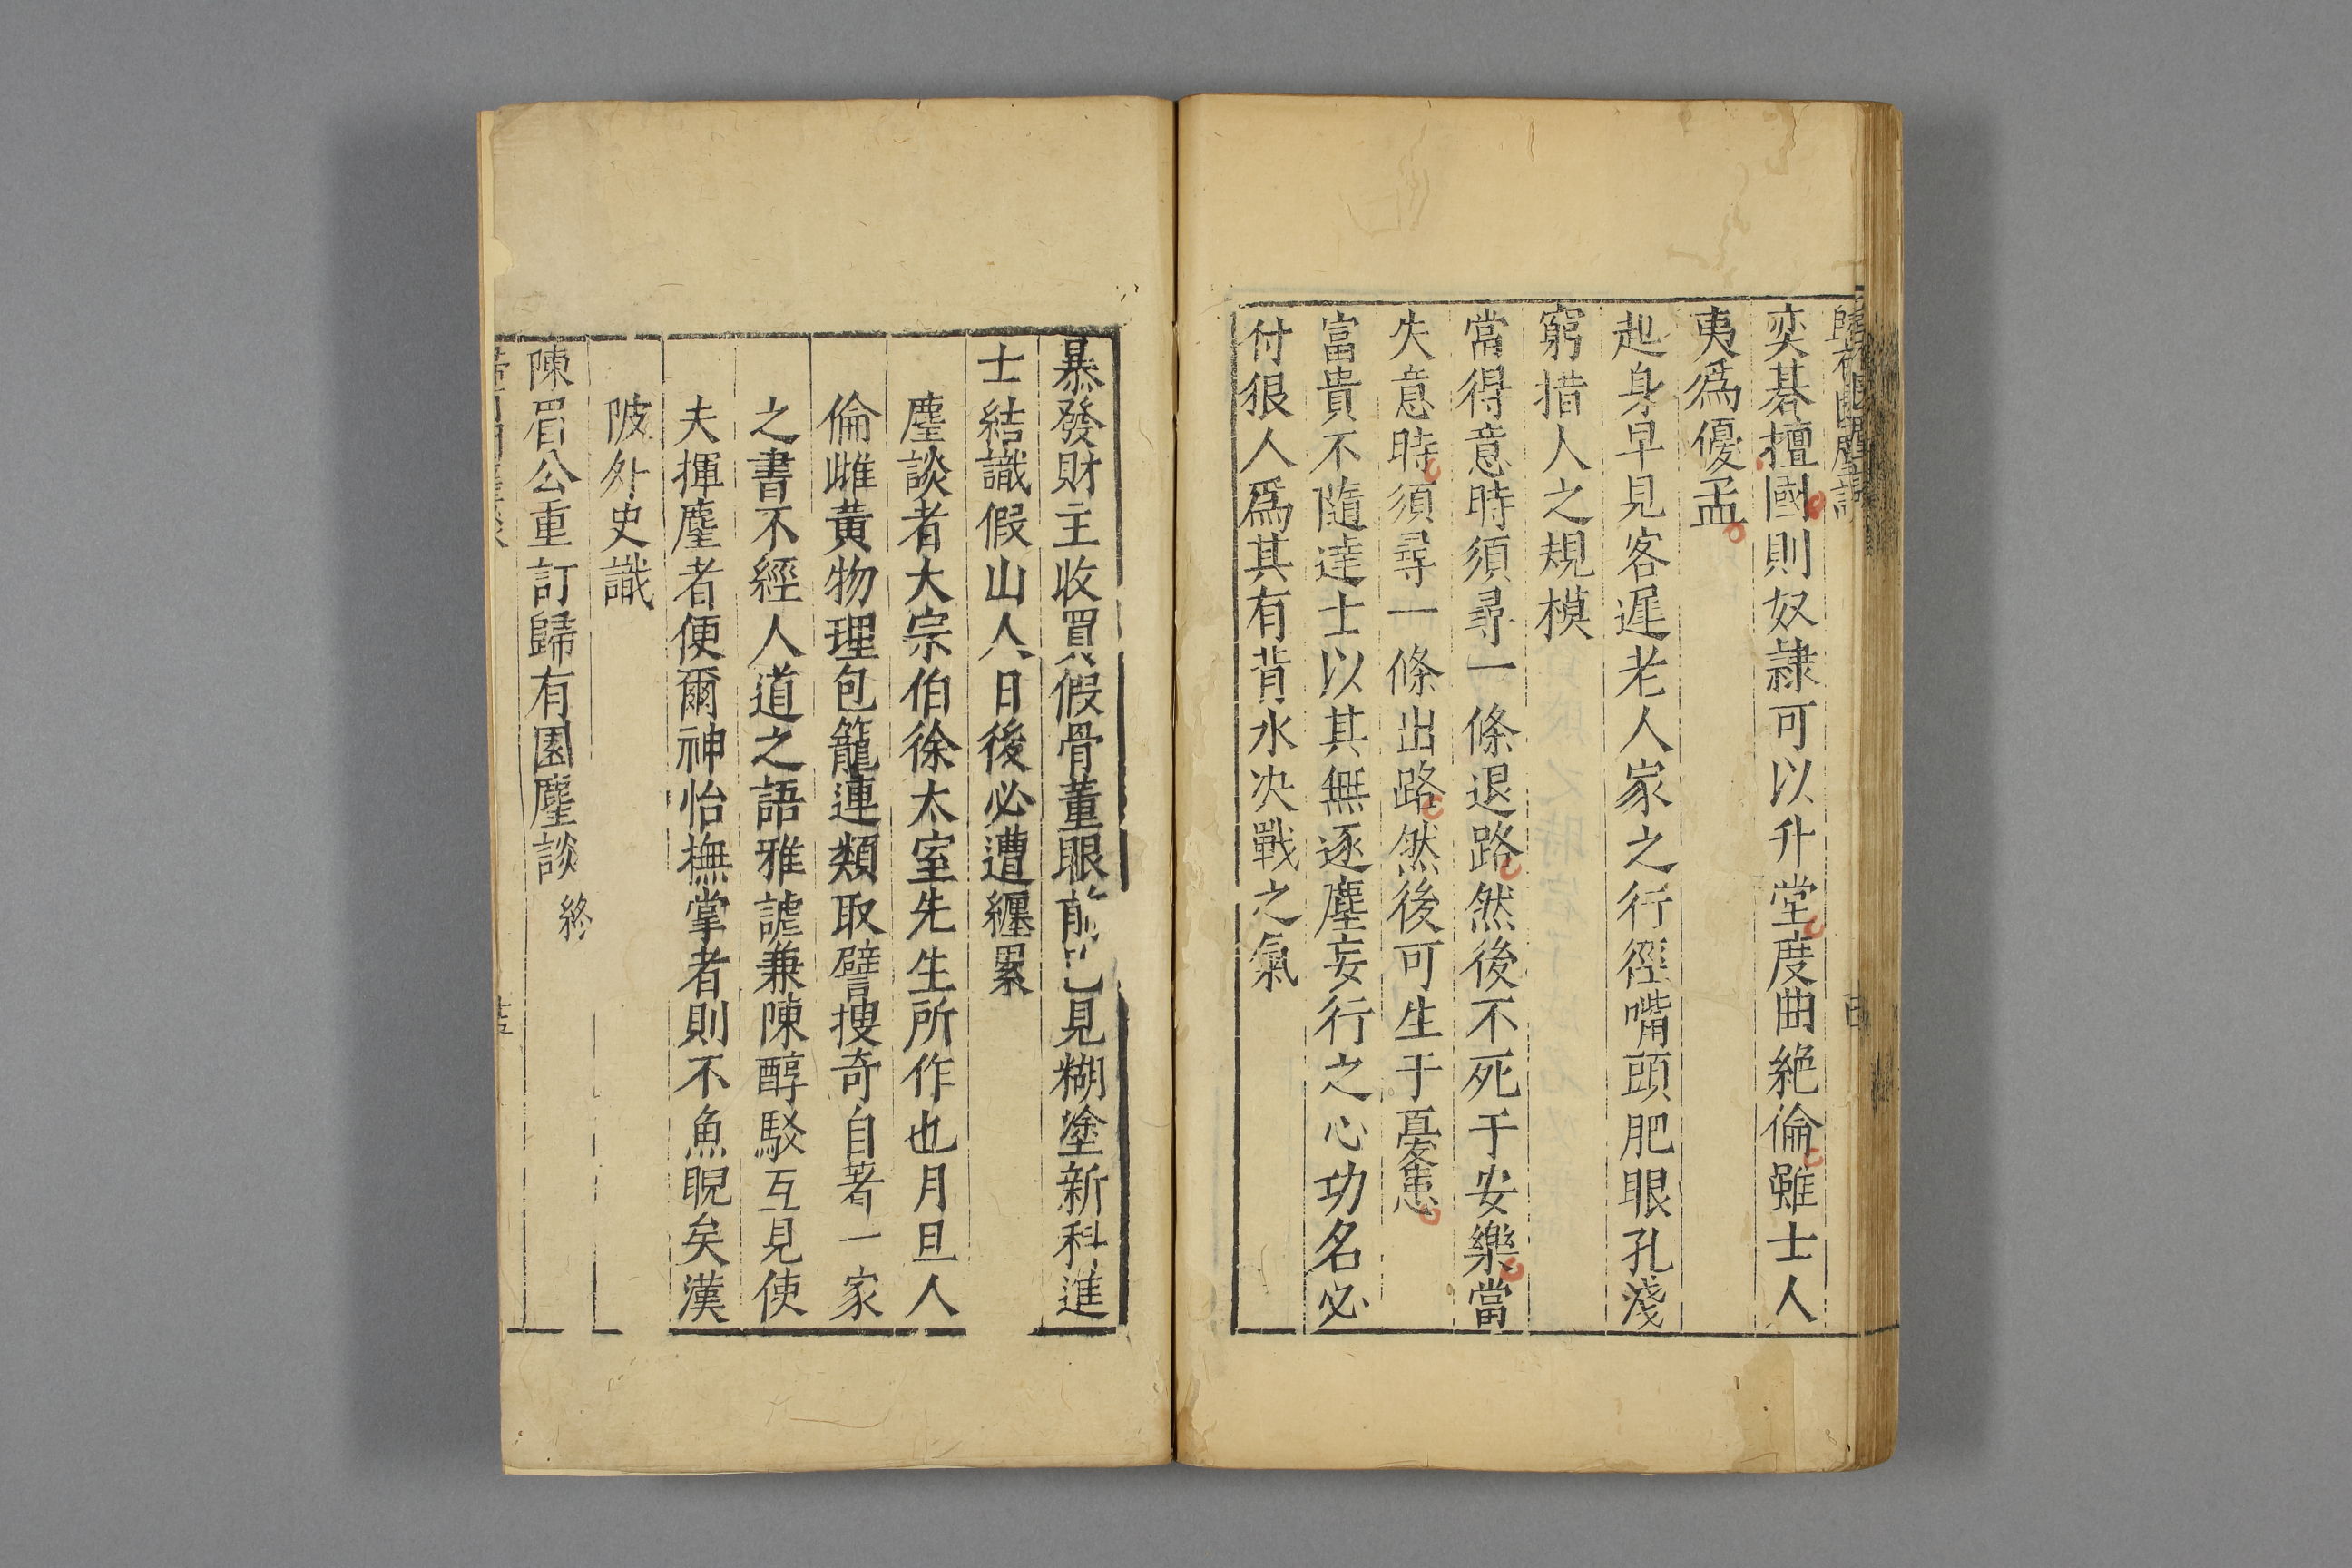 奕棊擅國則奴隷可以升堂度曲絶倫雖士人
夷爲優孟
起身早見客遲老人家之行徑嘴頭肥眼孔淺
窮措人之規模
當得意時須尋一條退路然後不死于安樂當
失意時須尋一條出路然後可生于憂患
富貴不隨達士以其無逐塵妄行之心功名必
付狠人爲其有背水决戰之氣
暴發財主收買假骨董眼前已見糊塗新科進
士結識假山人日後必遭纏累
麈談者大宗伯徐太室先生所作也月旦人
倫雌黄物理包籠連類取譬搜奇自著一家
之書不經人道之語雅謔兼陳醇駁互見使
夫揮麈者便爾神怡撫掌者則不魚睨矣漢
陂外史識
陳眉公重訂歸有園麈談 終